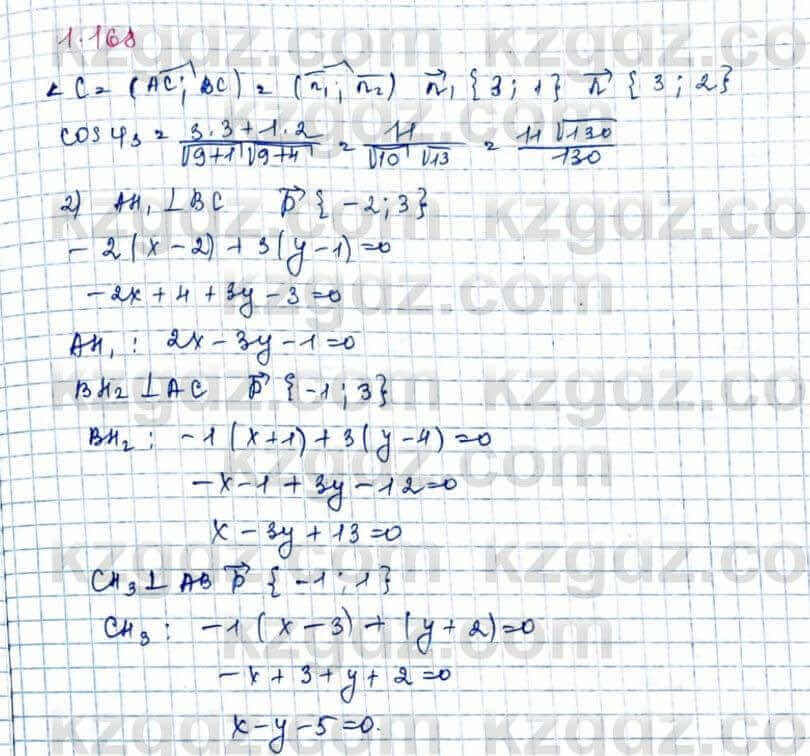 1.168
∠ C = (AC; BC) = (n₁; n₂) n₁ {3; 1} n {3; 2}
cos φ₃ = (3·3+1·2)/(√9+1 √9+4) = 11/(√10 √13) = 11√130/130
2) AH₁ ⊥ BC p {-2; 3}
-2(x-2)+3(y-1)=0
-2x+4+3y-3=0
AH₁: 2x-3y-1=0
BH₂ ⊥ AC p {-1; 3}
BH₂: -1(x+1)+3(y-4)=0
-x-1+3y-12=0
x-3y+13=0
CH₃ ⊥ AB p {-1; 1}
CH₃: -1(x-3)+(y+2)=0
-x+3+y+2=0
x-y-5=0.
kzgdz.com